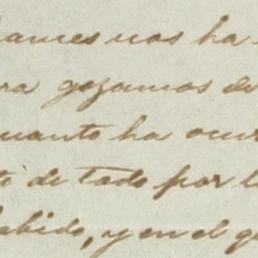 hames nos ha
ra gozamos de
uanto ha ocur
te de todo por l
abido, y en el g